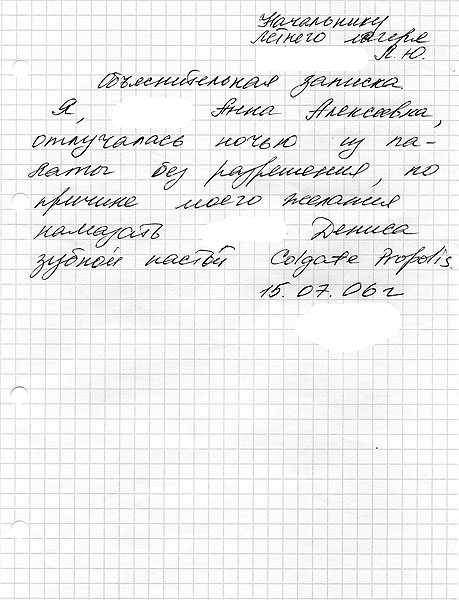 Начальнику
летнего лагеря
Л.Ю.
Объяснительная записка.
Я, Анна Алексеевна,
отлучалась ночью из па-
латы без разрешения, по
причине моего желания
намазать Дениса
зубной пастой Colgate Propolis.
15.07.06г